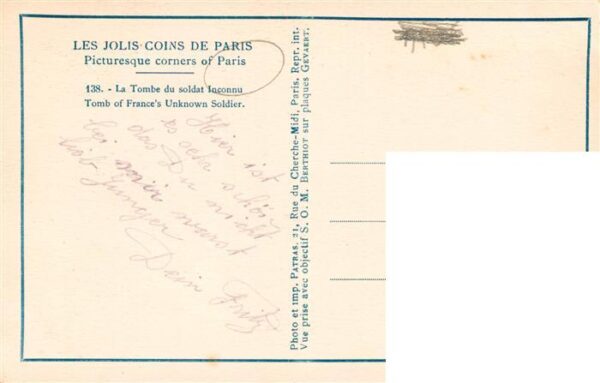 LES JOLIS COINS DE PARIS
Picturesque corners of Paris
138. - La Tombe du soldat Inconnu
Tomb of France's Unknown Soldier.
Hier ist
es sehr schön
das Du nicht
bei mir warst
lieb Junger
Dein Fritz
Photo et imp. PATRAS, 21, Rue du Cherche-Midi, Paris, Repr. int.
Vue prise avec objectif S. O. M. BERTHIOT sur plaques GEVAERT.